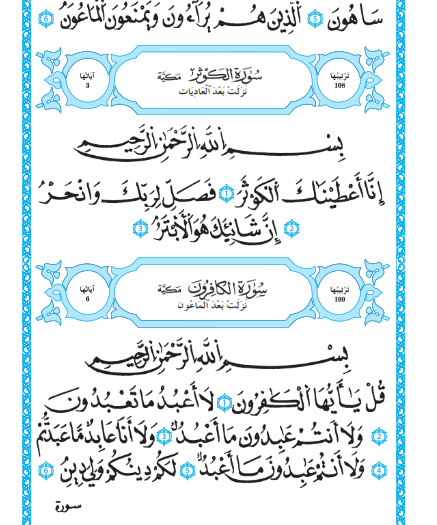 سَاهُونَ ٥ ٱلَّذِينَ هُمْ يُرَآءُونَ وَيَمْنَعُونَ ٱلْمَاعُونَ ٦
ترتيبها 108 سُورَةُ الكَوْثَرِ مَكيَّة آياتها 3
نزلت بَعْدَ العَاديَات
بِسْمِ ٱللَّهِ ٱلرَّحْمَٰنِ ٱلرَّحِيمِ
إِنَّا أَعْطَيْنَاكَ ٱلْكَوْثَرَ ١ فَصَلِّ لِرَبِّكَ وَٱنْحَرْ
٢ إِنَّ شَانِئَكَ هُوَ ٱلْأَبْتَرُ ٣
ترتيبها 109 سُورَةُ الكَافِرُونَ مَكيَّة آياتها 6
نزلت بَعْدَ المَاعُون
بِسْمِ ٱللَّهِ ٱلرَّحْمَٰنِ ٱلرَّحِيمِ
قُلْ يَٰٓأَيُّهَا ٱلْكَٰفِرُونَ ١ لَا أَعْبُدُ مَا تَعْبُدُونَ
٢ وَلَا أَنتُمْ عَٰبِدُونَ مَا أَعْبُدُ ٣ وَلَا أَنَا عَابِدٌ مَّا عَبَدتُّمْ
٤ وَلَا أَنتُمْ عَٰبِدُونَ مَا أَعْبُدُ ٥ لَكُمْ دِينُكُمْ وَلِيَ دِينِ ٦
سورة